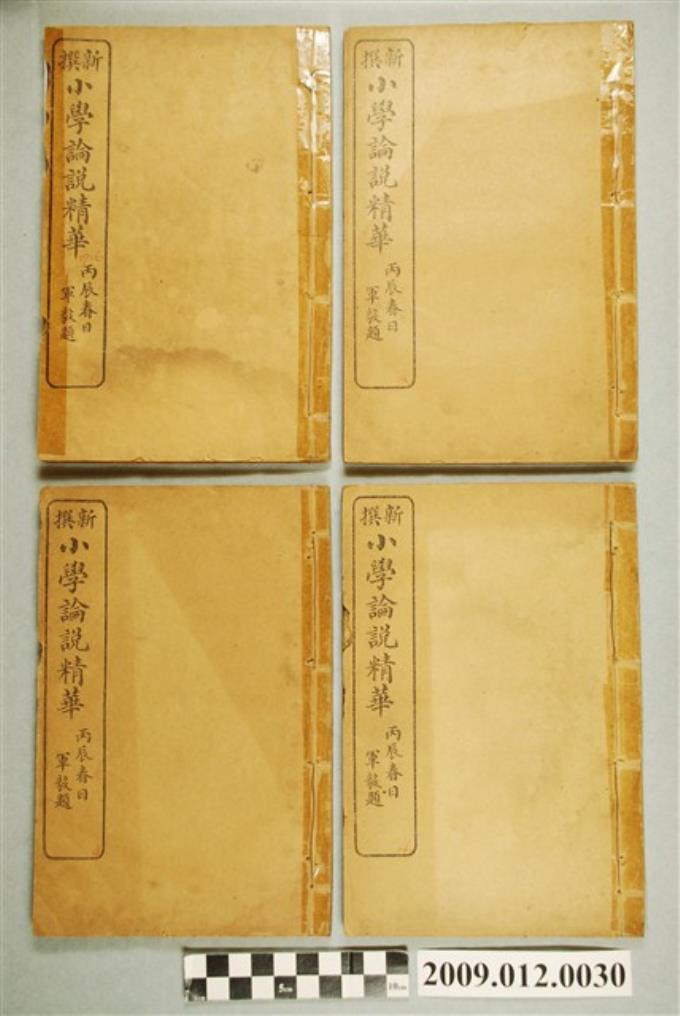 新撰
小學論説精華
丙辰春日
軍毅題
新撰
小學論説精華
丙辰春日
軍毅題
新撰
小學論説精華
丙辰春日
軍毅題
新撰
小學論説精華
丙辰春日
軍毅題
5cm 10cm
2009.012.0030